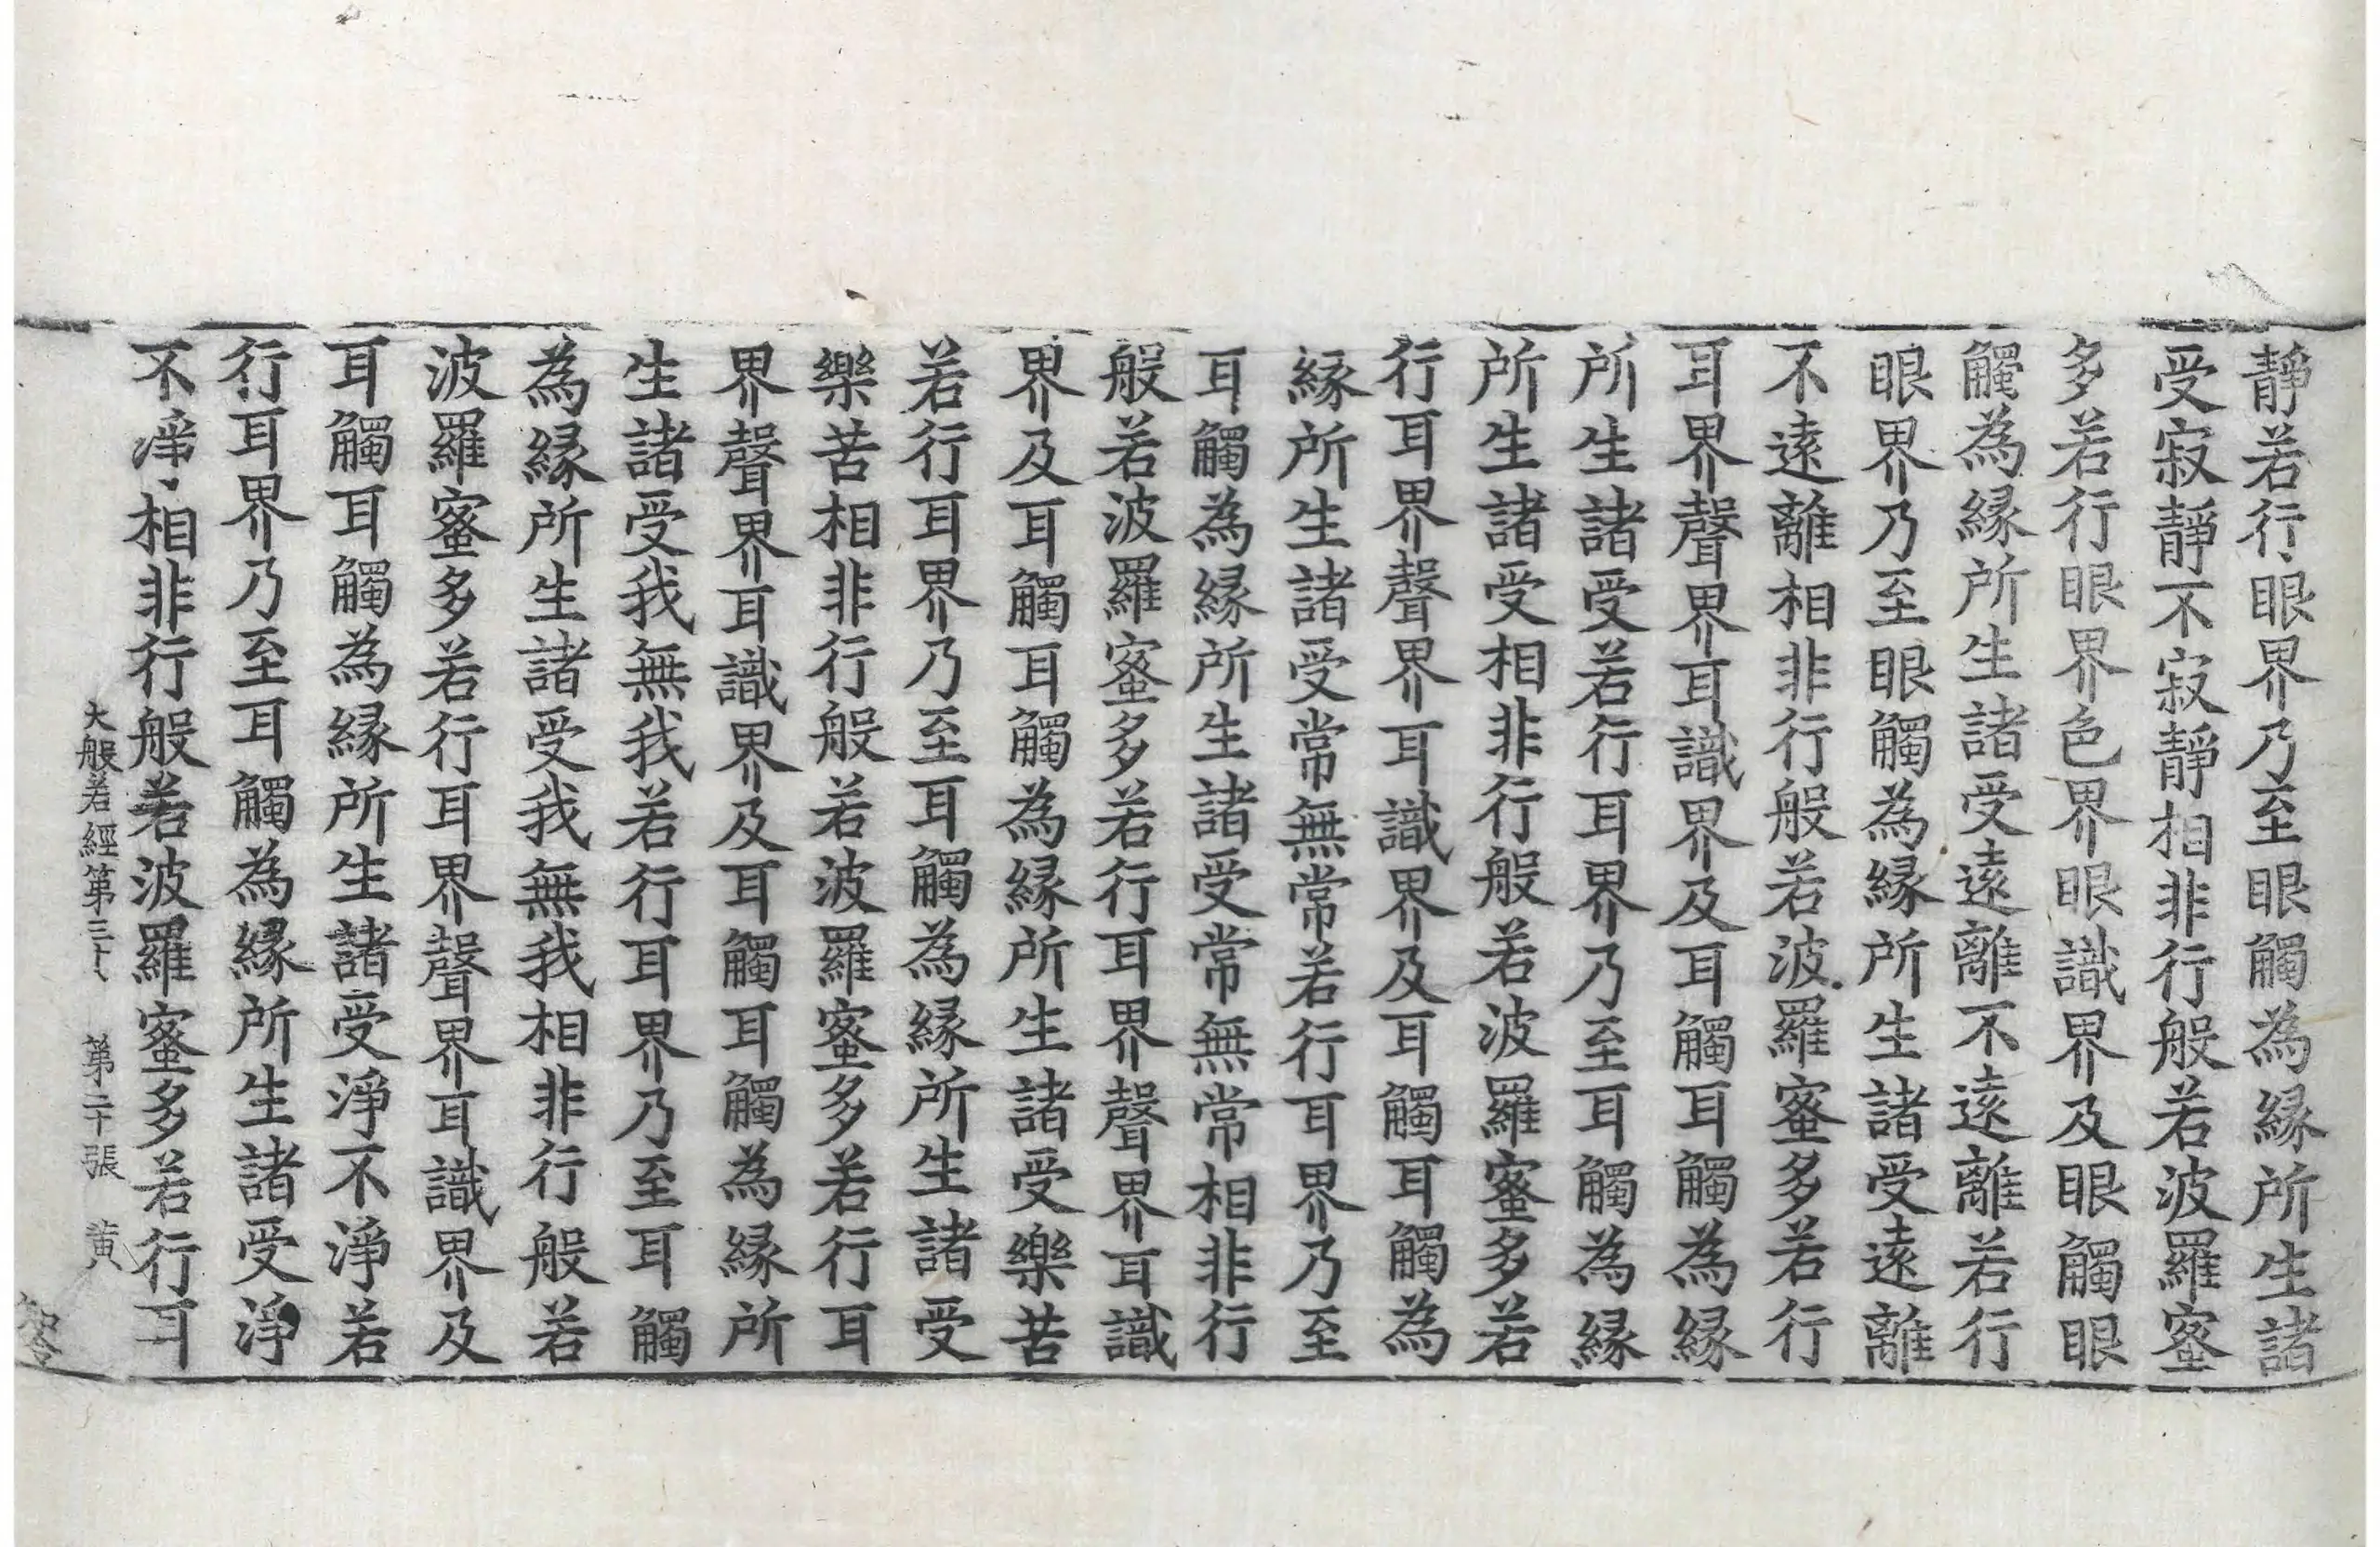 靜若行眼界乃至眼觸為縁所生諸
受寂靜不寂靜相非行般若波羅蜜
多若行眼界色界眼識界及眼觸眼
觸為縁所生諸受遠離不遠離若行
眼界乃至眼觸為縁所生諸受遠離
不遠離相非行般若波羅蜜多若行
耳界聲界耳識界及耳觸耳觸為縁
所生諸受若行耳界乃至耳觸為縁
所生諸受相非行般若波羅蜜多若
行耳界聲界耳識界及耳觸耳觸為
縁所生諸受常無常若行耳界乃至
耳觸為縁所生諸受常無常相非行
般若波羅蜜多若行耳界聲界耳識
界及耳觸耳觸為縁所生諸受樂苦
若行耳界乃至耳觸為縁所生諸受
樂苦相非行般若波羅蜜多若行耳
界聲界耳識界及耳觸耳觸為縁所
生諸受我無我若行耳界乃至耳觸
為縁所生諸受我無我相非行般若
波羅蜜多若行耳界聲界耳識界及
耳觸耳觸為縁所生諸受淨不淨若
行耳界乃至耳觸為縁所生諸受淨
不淨相非行般若波羅蜜多若行耳
大般若經第三十八 第二十張 黄